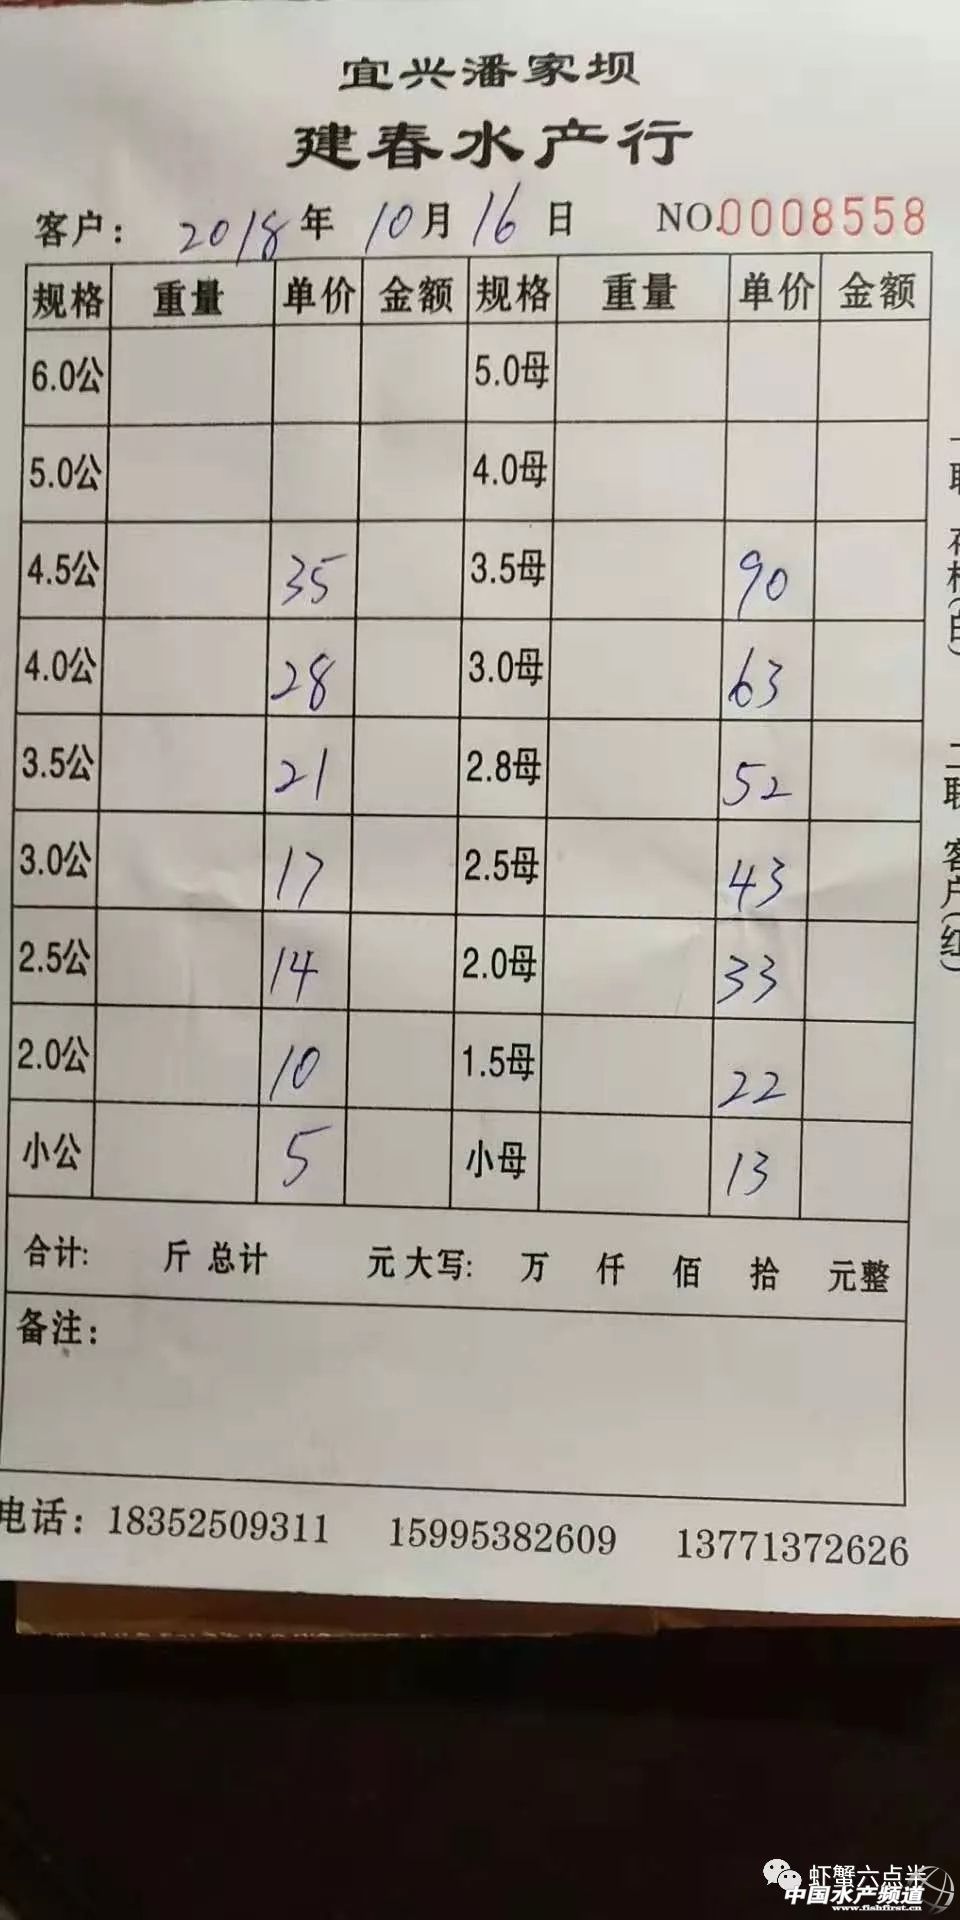 宜兴潘家坝
建春水产行
客户: 2018年 10月 16日 NO.0008558
规格 重量 单价 金额 规格 重量 单价 金额
6.0公 5.0母
5.0公 4.0母
4.5公 35 3.5母 90
4.0公 28 3.0母 63
3.5公 21 2.8母 52
3.0公 17 2.5母 43
2.5公 14 2.0母 33
2.0公 10 1.5母 22
小公 5 小母 13
合计: 斤 总计 元 大写: 万 仟 佰 拾 元整
备注:
电话: 18352509311 15995382609 13771372626
二联 客户(红)
虾蟹六点半
中国水产频道
www.fishfirst.cn